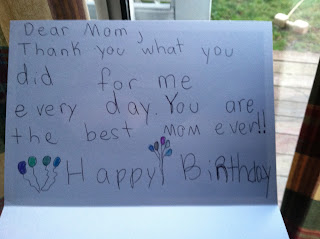 Dear Mom,
Thank you what you
did for me
every day. You are
the best mom ever!!
Happy Birthday